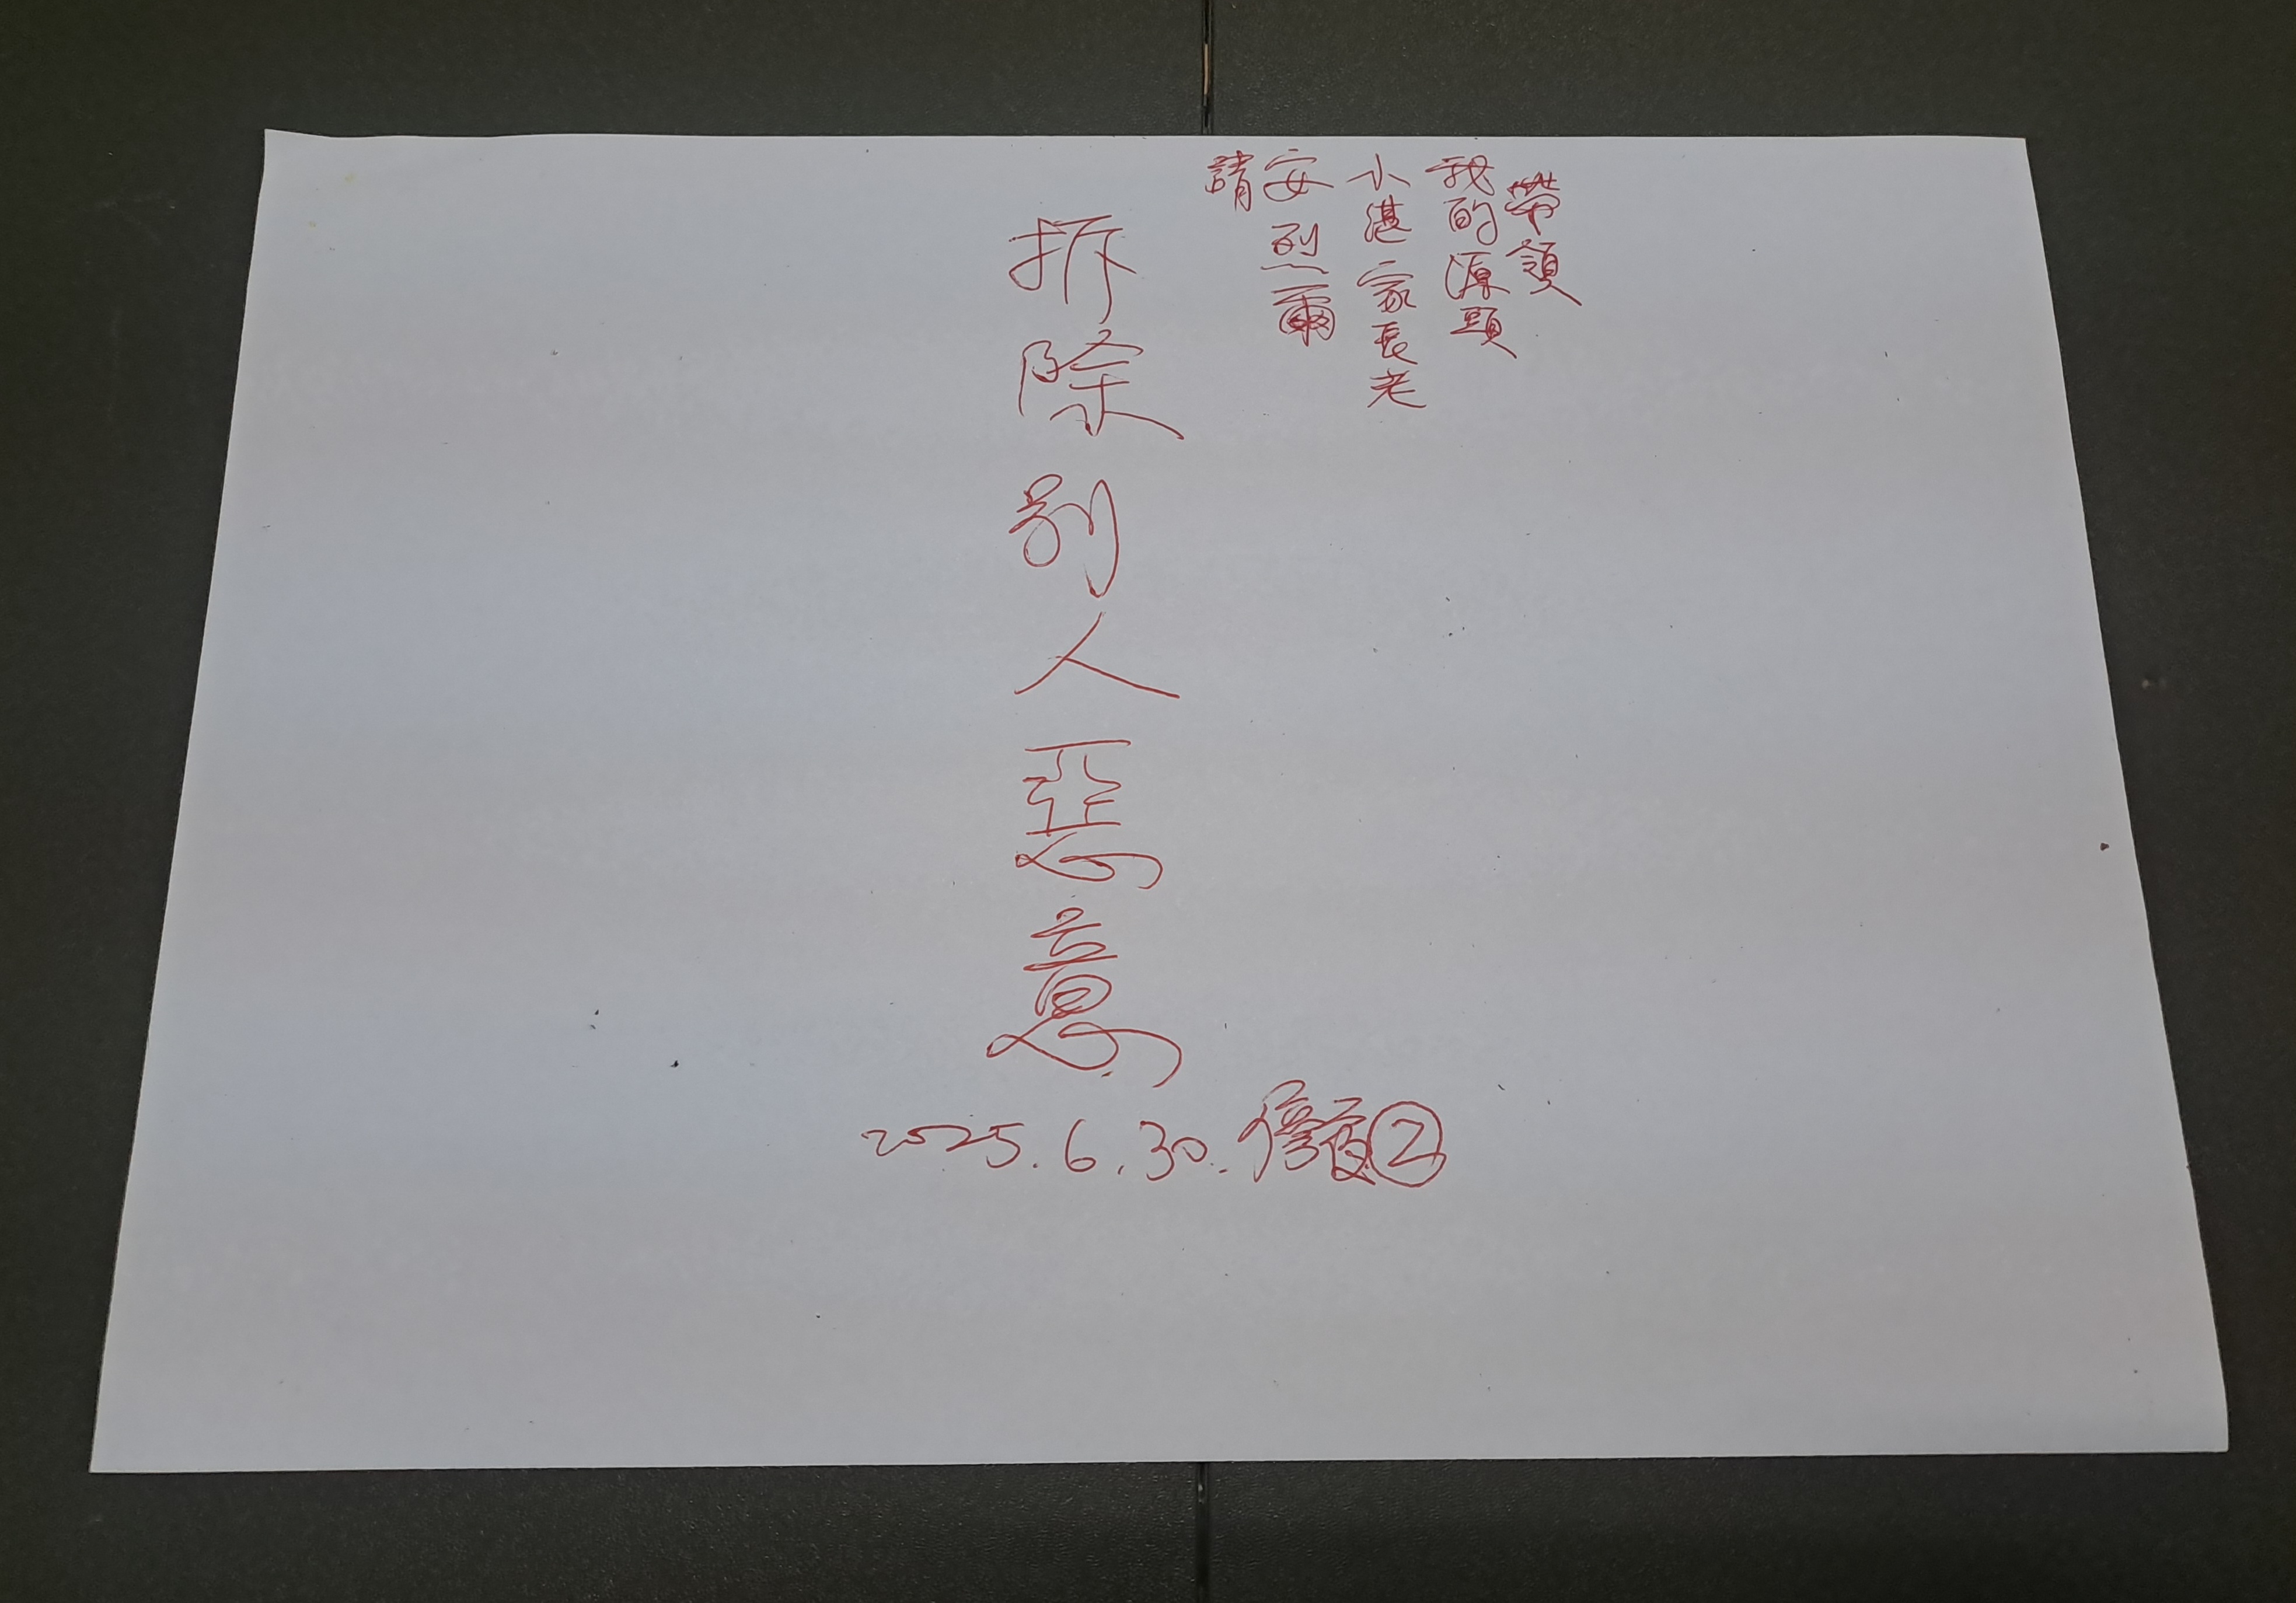 請
安烈爾
小湛家長老
我的源頭
帶領
拆除別人惡意
2025.6.30. ②